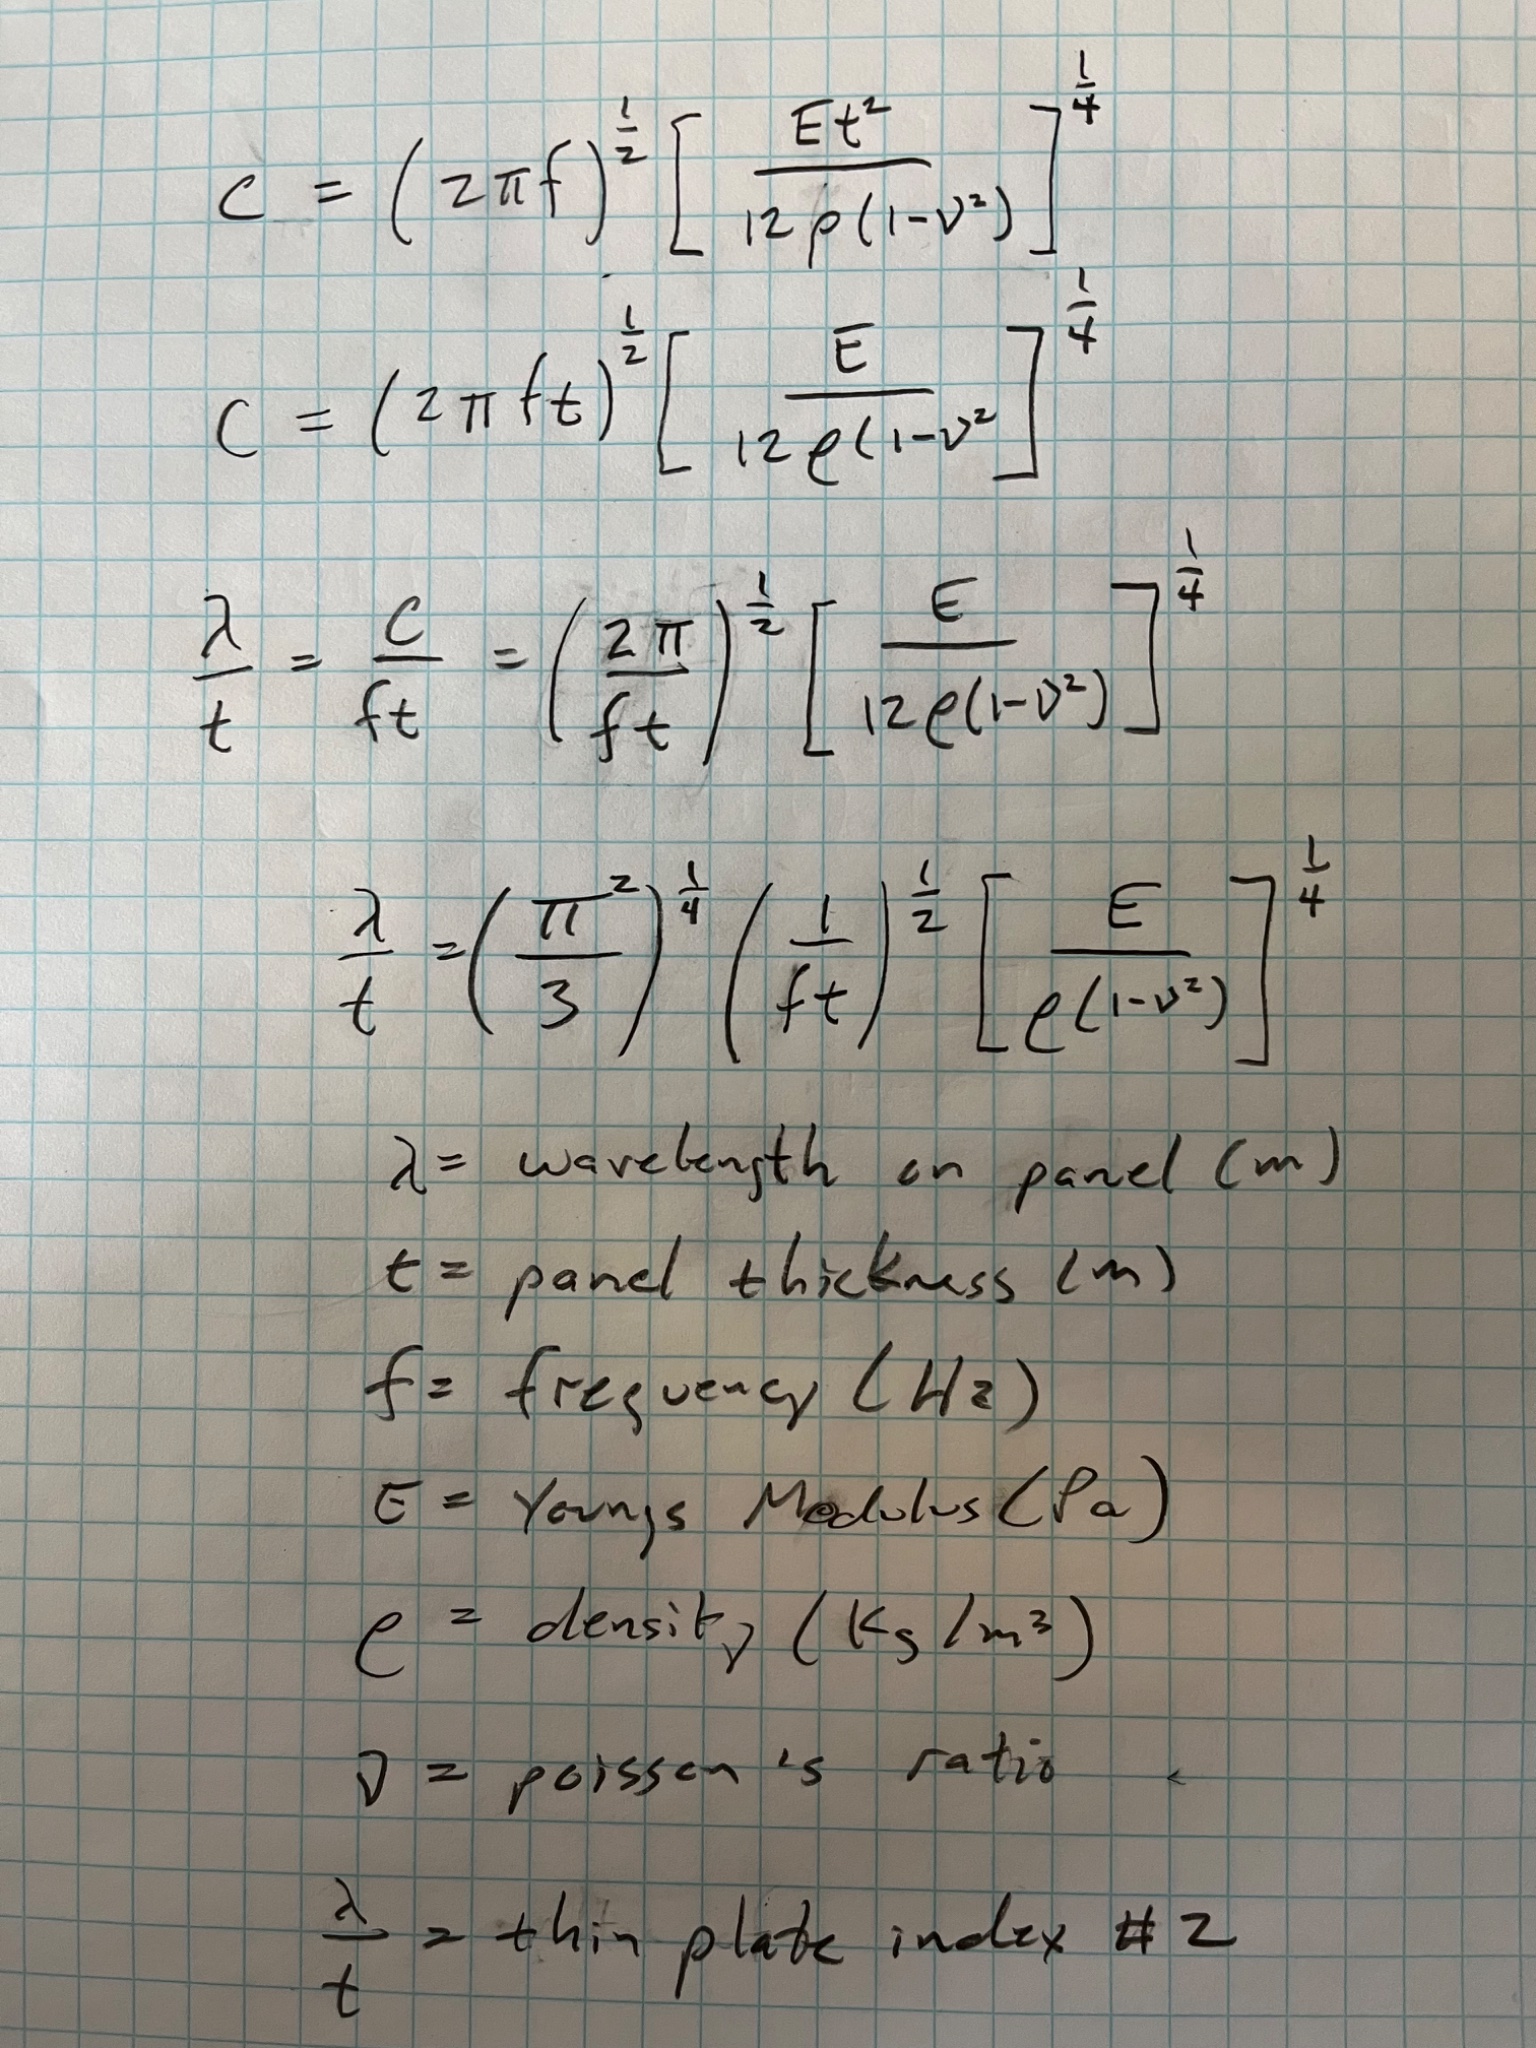 c = (2πf)^(1/2) [Et² / 12ρ(1-ν²)]^(1/4)
c = (2πft)^(1/2) [E / 12ρ(1-ν²]^(1/4)
λ/t = c/ft = (2π/ft)^(1/2) [E / 12ρ(1-ν²)]^(1/4)
λ/t = (π²/3)^(1/4) (1/ft)^(1/2) [E / ρ(1-ν²)]^(1/4)
λ = wavelength on panel (m)
t = panel thickness (m)
f = frequency (Hz)
E = Youngs Modulus (Pa)
ρ = density (Kg/m³)
ν = poisson's ratio
λ/t = thin plate index #2